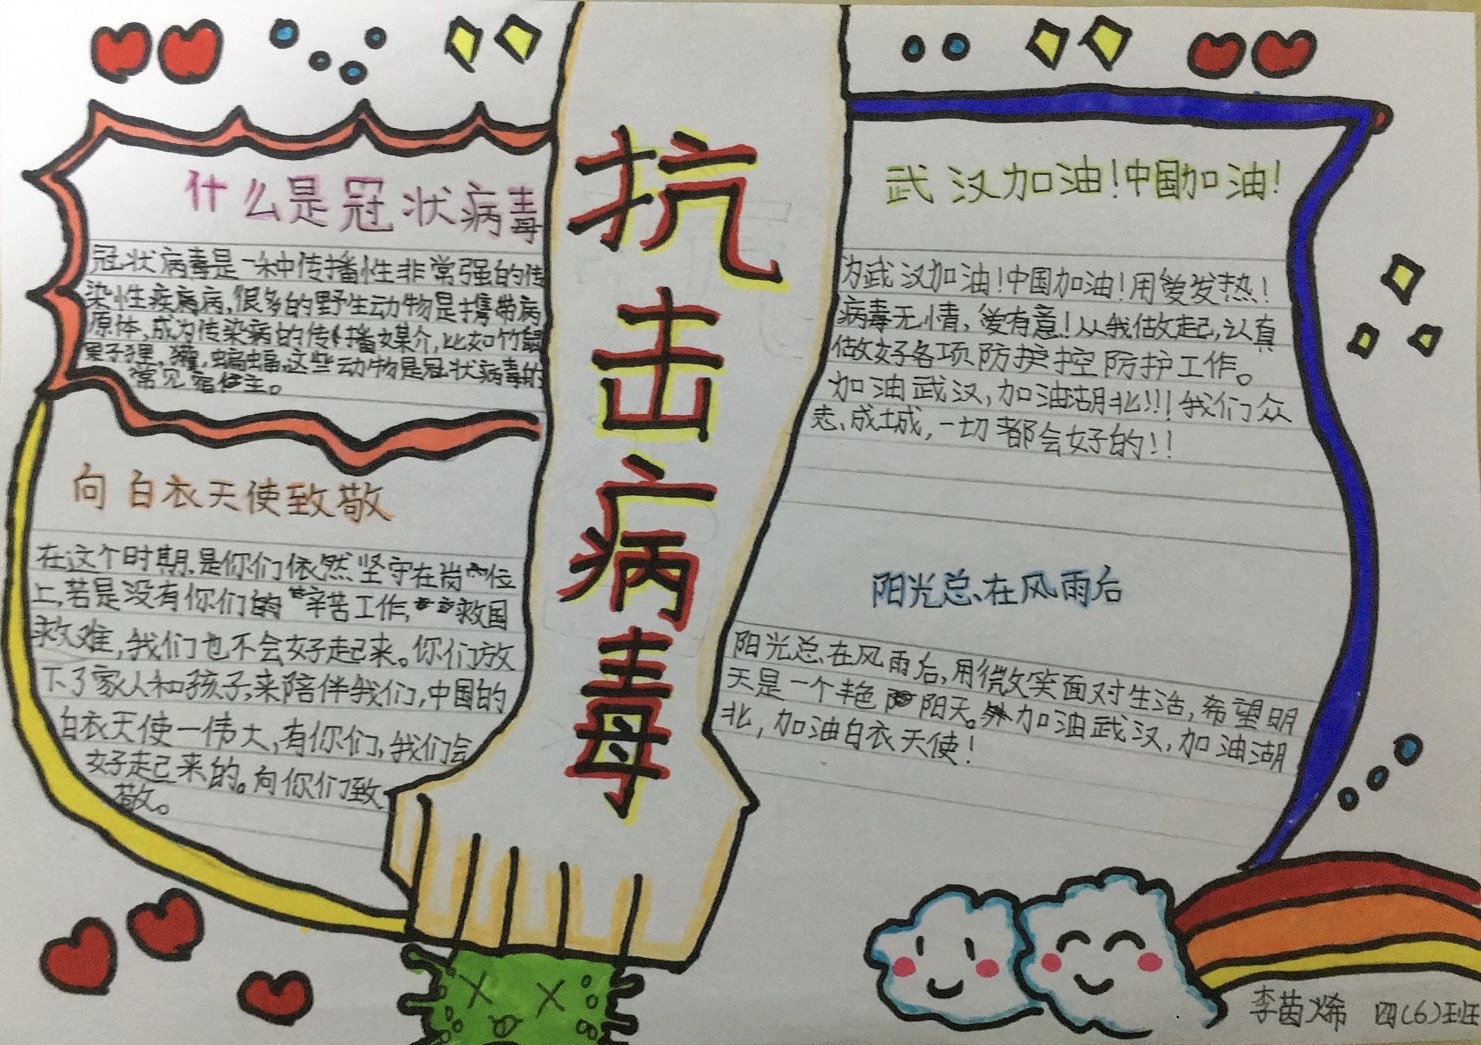 什么是冠状病毒
冠状病毒是一种传播性非常强的传
染性疾病,很多的野生动物是携带病
原体,成为传染病的传播媒介,比如竹鼠
果子狸,獾,蝙蝠,这些动物是冠状病毒的
常见宿住主。
向白衣天使致敬
在这个时期,是你们依然坚守在岗位
上,若是没有你们的辛苦工作,救国
救难,我们也不会好起来。你们放
下了家人和孩子,来陪伴我们,中国的
白衣天使一伟大,有你们,我们会
好走起来的。向你们致
敬。
抗击病毒
武汉加油!中国加油!
为武汉加油!中国加油!用爱发热!
病毒无情,爱有意!从我做起,认真
做好各项防护控防护工作。
加油武汉,加油湖北!!!我们众
志成城,一切都会好的!!
阳光总在风雨后
阳光总在风雨后,用微笑面对生活,希望明
天是一个艳阳天。加油武汉,加油湖
北,加油白衣天使!
李茵烯 四(6)班